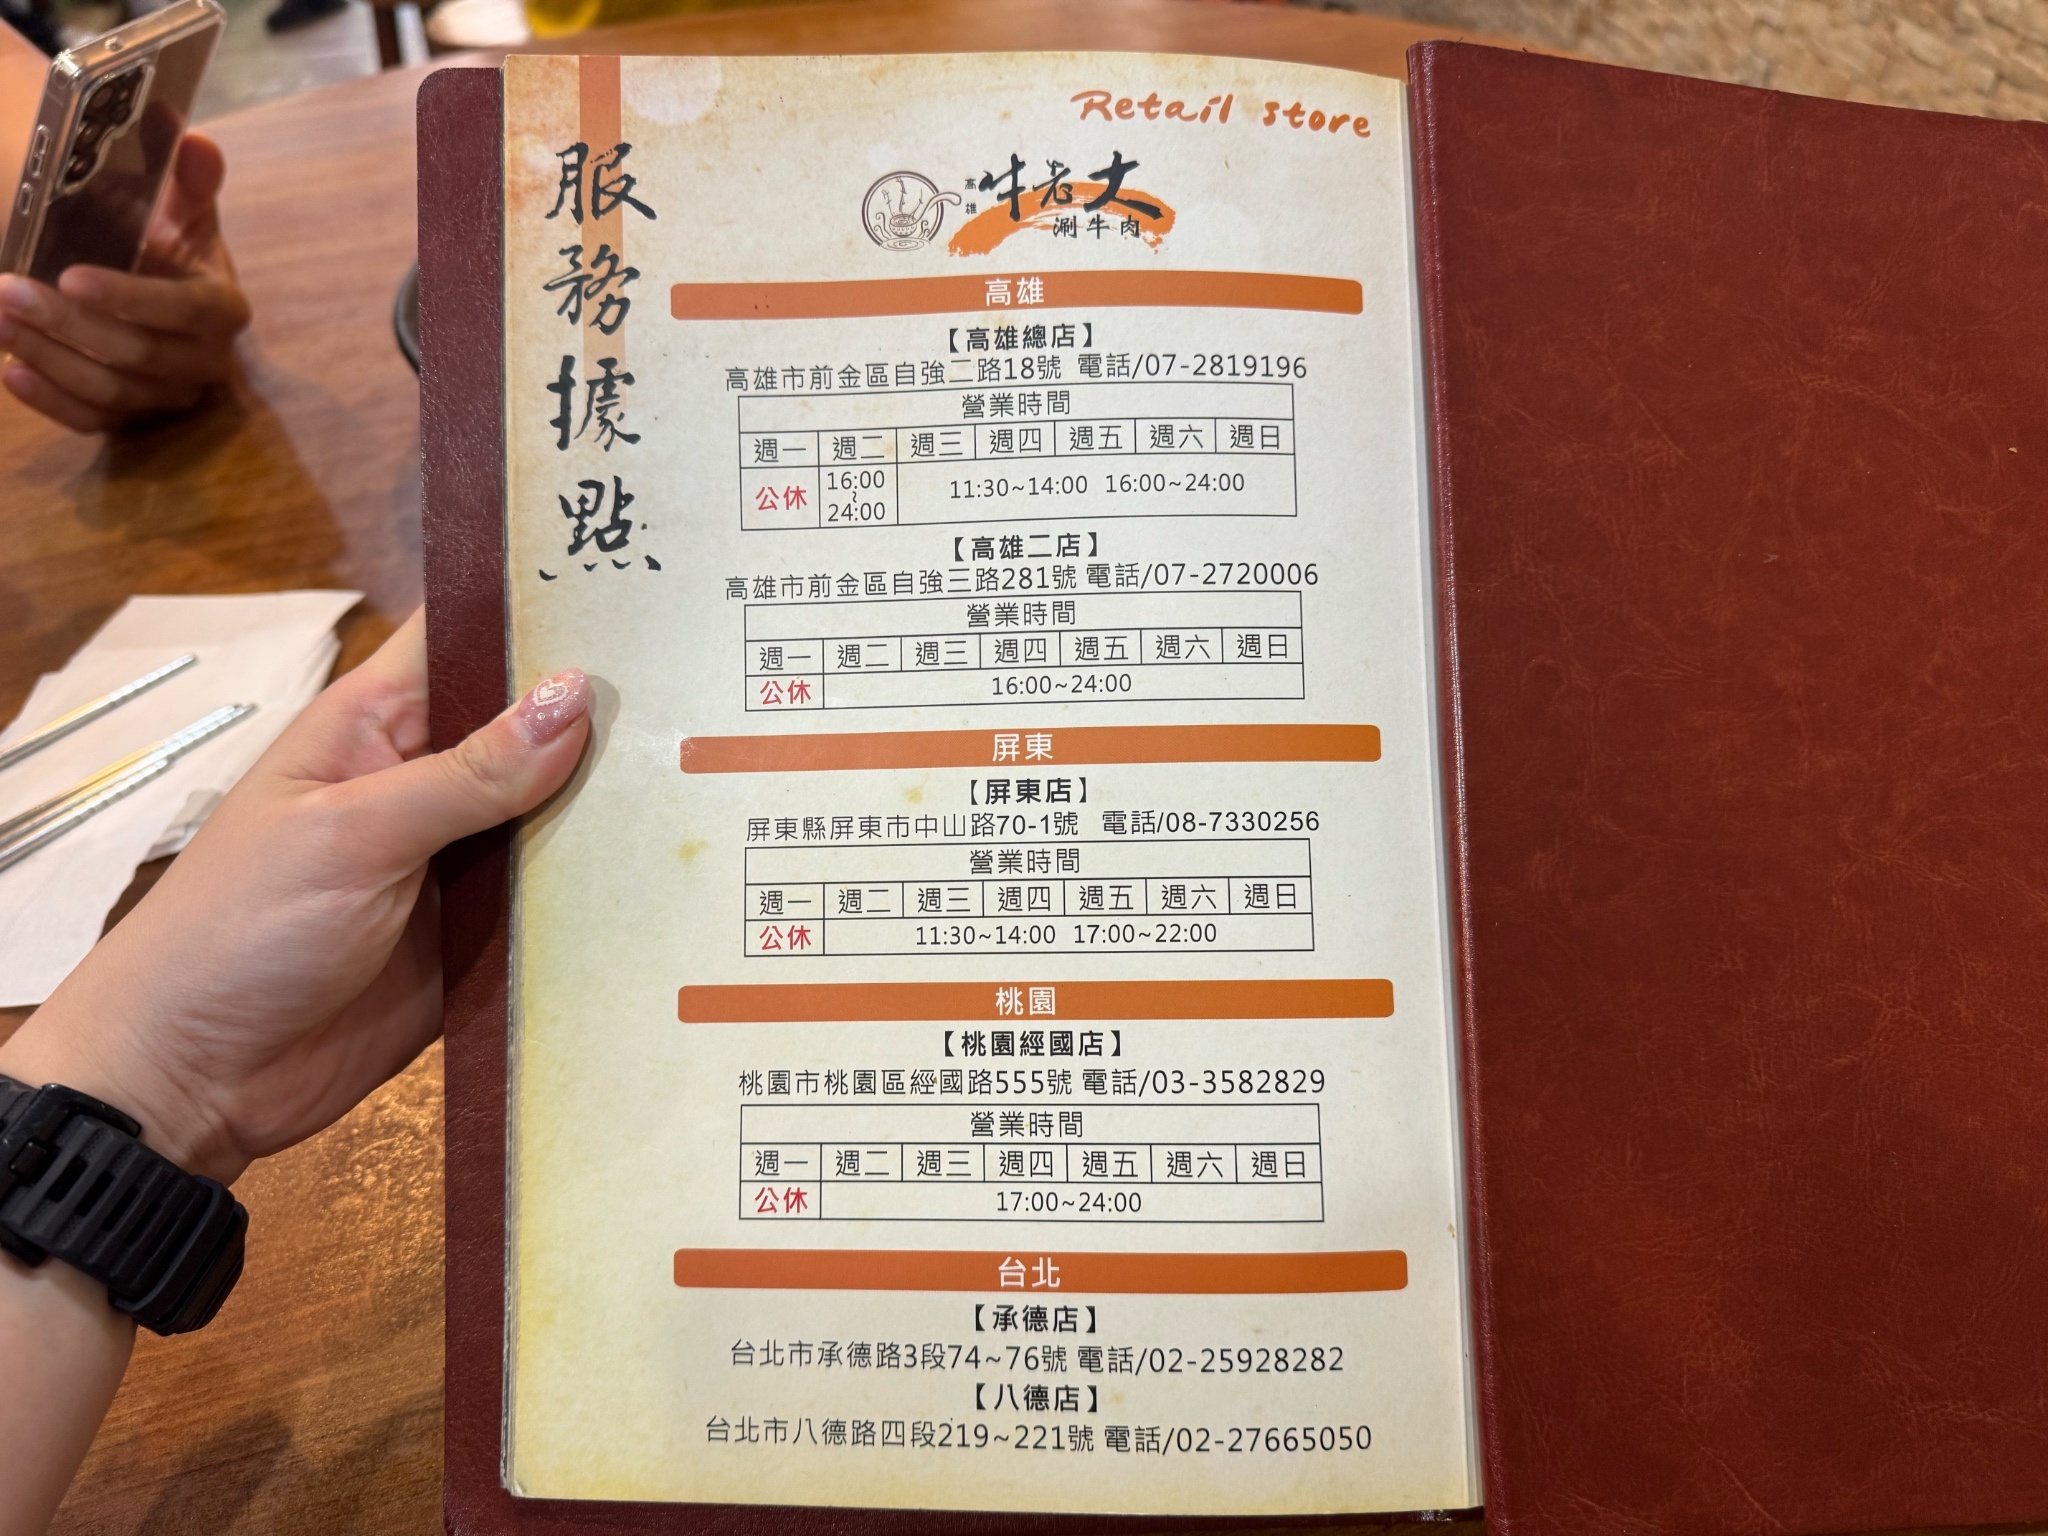 Retail store
服務據點
高雄
牛老大
涮牛肉
高雄
【高雄總店】
高雄市前金區自強二路18號 電話/07-2819196
營業時間
週一 週二 週三 週四 週五 週六 週日
公休 16:00~24:00 11:30~14:00 16:00~24:00
【高雄二店】
高雄市前金區自強三路281號 電話/07-2720006
營業時間
週一 週二 週三 週四 週五 週六 週日
公休 16:00~24:00
屏東
【屏東店】
屏東縣屏東市中山路70-1號 電話/08-7330256
營業時間
週一 週二 週三 週四 週五 週六 週日
公休 11:30~14:00 17:00~22:00
桃園
【桃園經國店】
桃園市桃園區經國路555號 電話/03-3582829
營業時間
週一 週二 週三 週四 週五 週六 週日
公休 17:00~24:00
台北
【承德店】
台北市承德路3段74~76號 電話/02-25928282
【八德店】
台北市八德路四段219~221號 電話/02-27665050